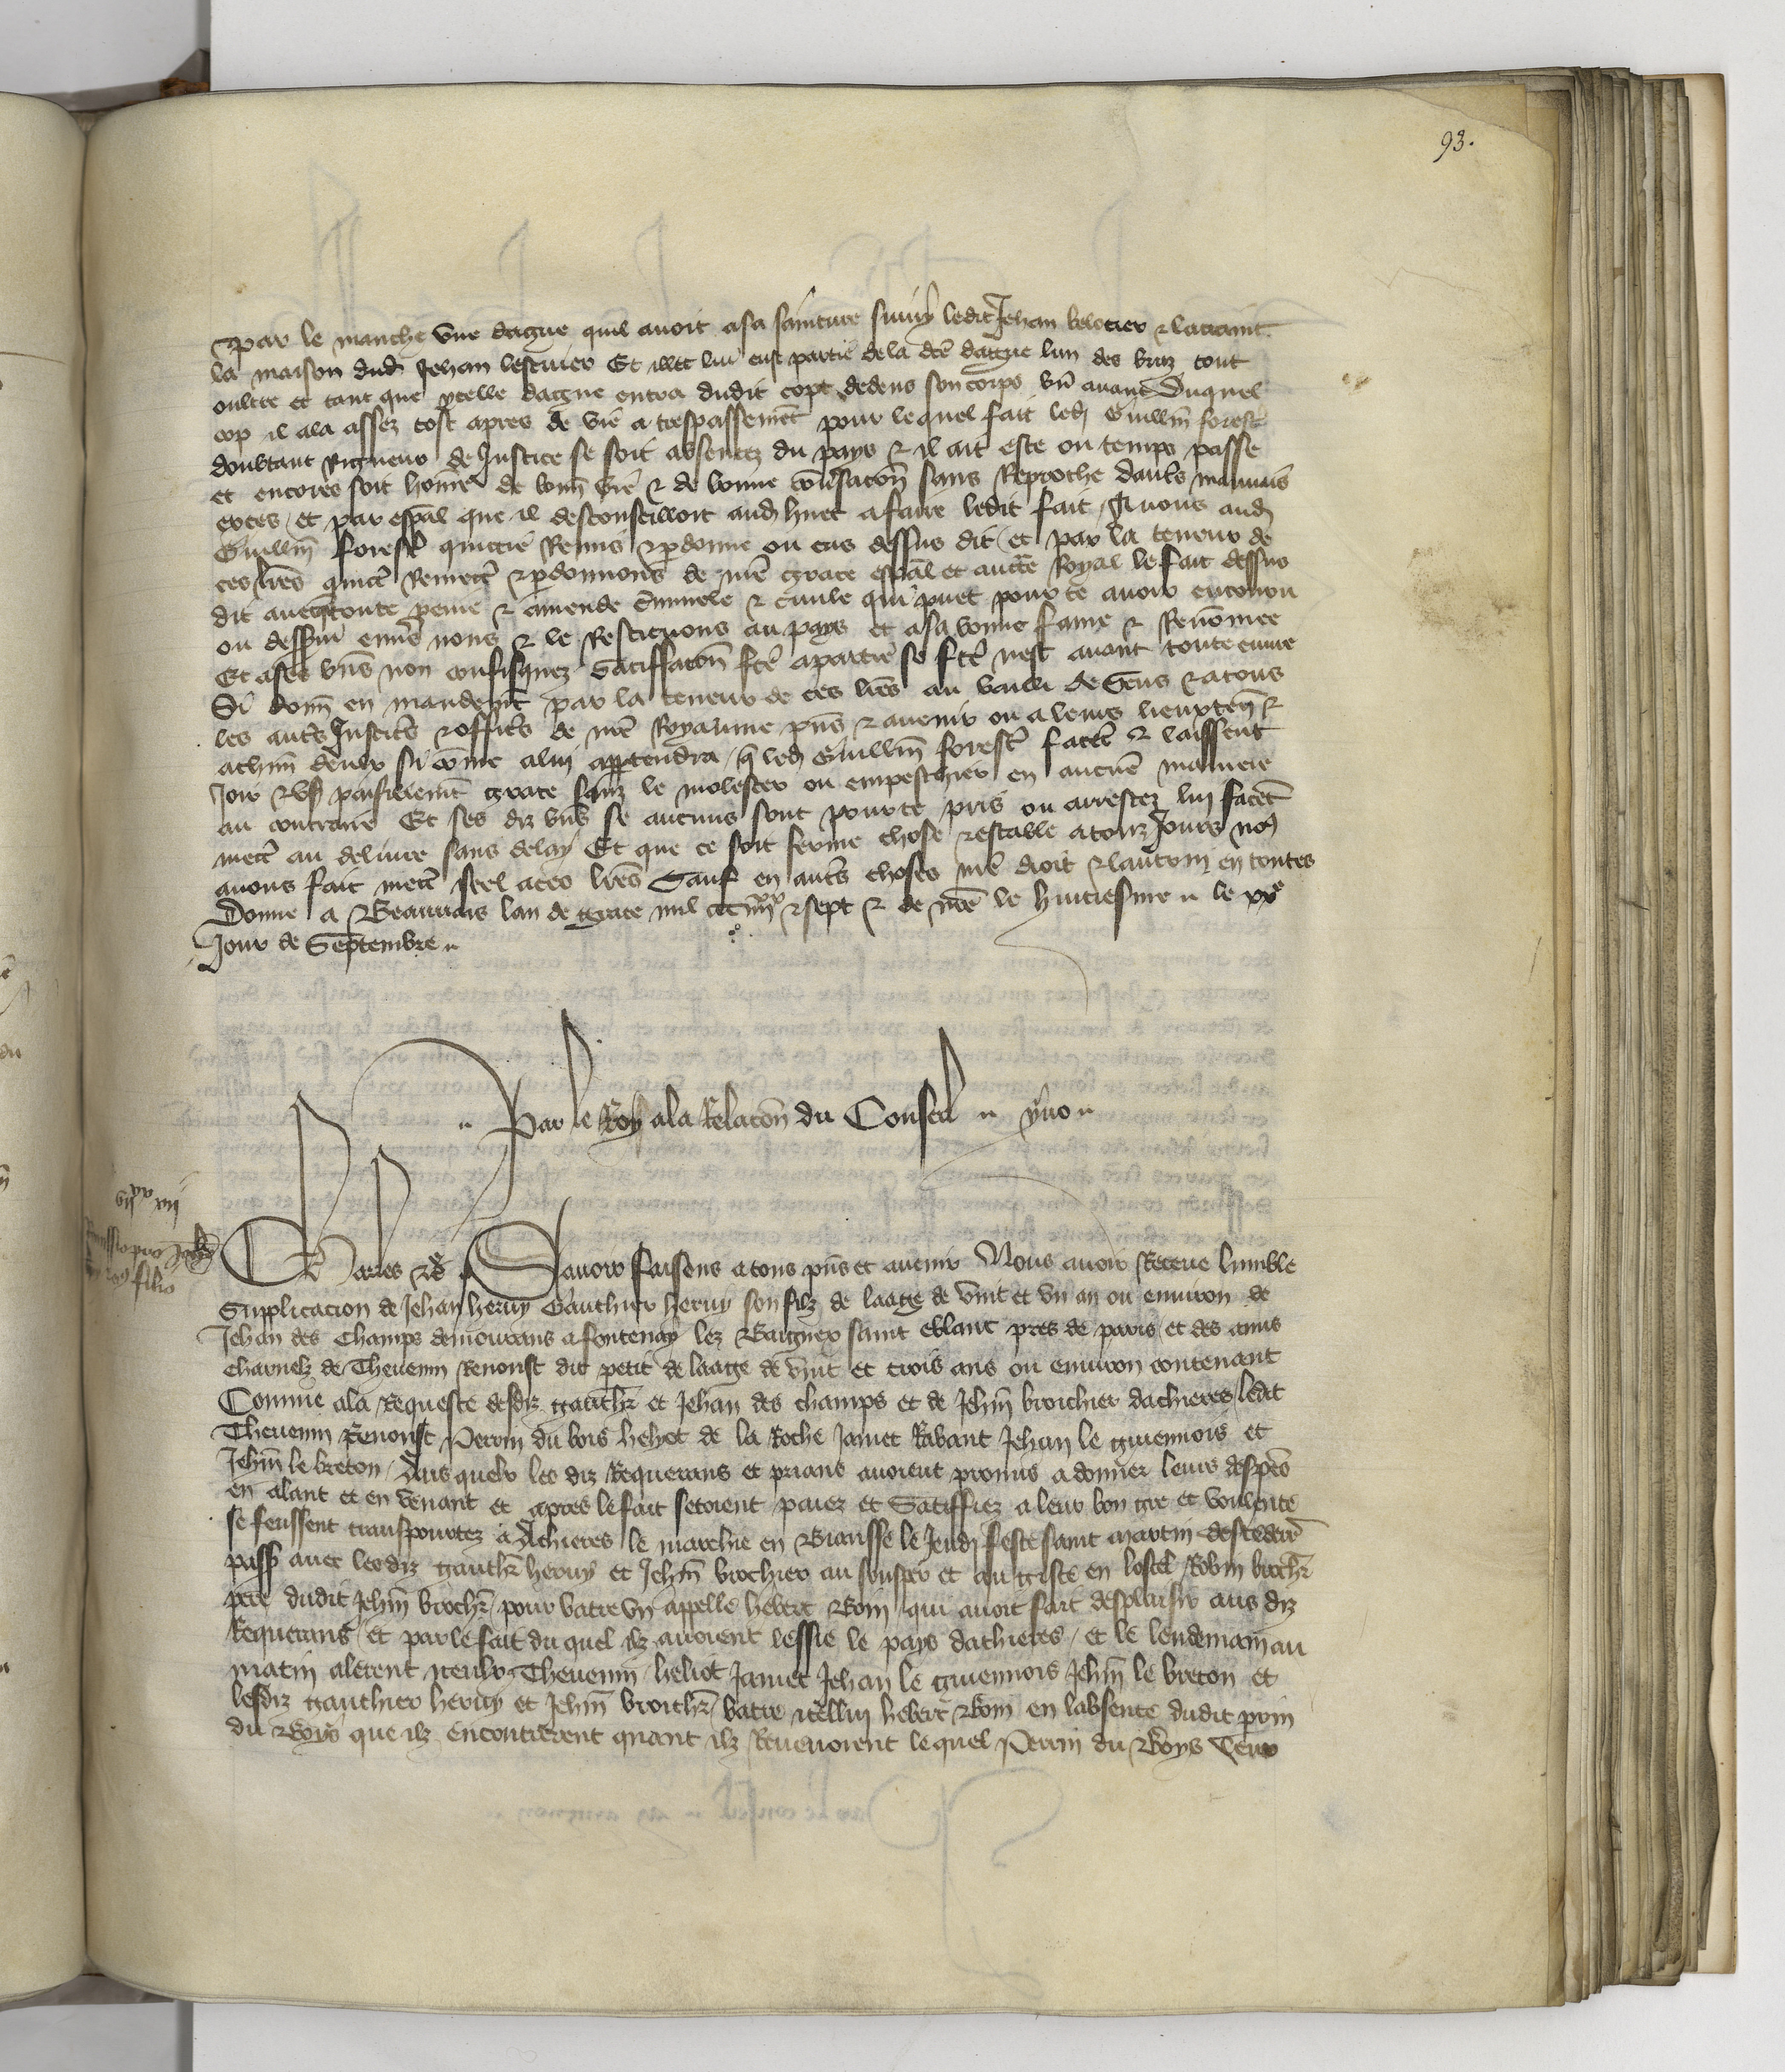 93.
par le manche une dague quil avoit a sa sainture suivy ledit Jehan belotier & lataint
la maison dud Jehan lescuier Et illec lui eust partie de la dcē dague lun des braz tout
oultre et tant que ycelle dague entra dudit cop dedens son corps bn̄ avant Duquel
cop il ala assez tost apres de vie a trespassemēt pour lequel fait led Guillm̄ forest
doubtant Rigueur de Justice se soit absentez du pays & il ait este ou temps passe
et encores soit hom̄e de bonn vie & de bonne cōvsacōn sans Reproche dautrs mauvais
exces / et par espāl que il desconseilloit aud huet a faire ledit fait / Avons aud
Guillm̄ forest quictie Remis & pdonne ou cas dessus dit / et par la teneur de
ces lr̄es quictōs Remectōs & pdonnons de nr̄e grace espāl et auctte Royal le fait dessus
dit avecq toute peine & amende crim̄nele & civile qui puet pour ce avoir encouru
ou desservi envs nous & le Restituons au pays et a sa bonne fame & Renōmee
Et a ses bn̄s non confisquez Satiffacōn fcē a partie se fcē nest avant toute euvre
Si donn̄ en mandemēt par la teneur de ces lr̄es au bailli de Sens & a tous
les autrs Justicrs & officrs de nrē Royaume pn̄s & avenir ou a leurs lieuxten̄ &
a chūn deulx si cōme a lui appartendra / q led Guillm̄ forest facēt & laissent
Joir & us paisiblemēt grace sanz le molester ou empeschier en aucune maniere
au contraire Et ses diz bn̄s se aucuns sont pour ce pris ou arrestez lui facēt
mectr au delivre sans delay Et que ce soit ferme chose & estable a touz Jours no
avons fait mectr scel a ces lr̄es Sauf en autrs choses nr̄e droit & lautruy en toutes
Donne a Beauvais lan de grace mil ccc iiiixx & sept & de nr̄e Regne le huitiesme .. le xxe
Jour de Septembre ..
.. Par le Roy a la Relacōn du Conseil .. yvo ..
viixx xvii
Remissio pro
filio
Charles &c Savoir faisons a tous pn̄s et avenir Nous avoir Receue lumble
Supplicacion de Jehan hervy Gauthier hervy son filz de laage de vint et un an ou environ de
Jehan des Champs demourans a fontenay lez Baigneux saint eblanc pres de paris / et des amis
charnelz de Thevenin Renoust dit petit de laage de vint et trois ans ou environ contenant
Comme a la Requeste desdiz gauthr et Jehan des champs et de Jehn̄ brochier dachieres / ledit
Thevenin Renoust Perrin du bois helyot de la Roche Jamet Rabant Jehan le guiennois et
Jehn̄ le breton / Aus quelx les diz Requerans et prians avoient promis a donner leurs despens
en alant et en venant et apres le fait seroient paiez et Satiffiez a leur bon gre et voulente
se feussent transportez a Achieres le marchie en Biausse le Jeudi feste saint martin deste derr
pass avec lesdiz gauthr hervy et Jehn̄ brochier au soupper et au giste en lostel Robin brochr
pere dudit Jehn̄ brochr / pour batre un appelle hebert Boin / qui avoit fait desplaisir aus diz
Requerans / et par le fait du quel ilz avoient lessie le pays dachieres / et le lendemain au
matin alerent iceulx Thevenin / heliot Jamet Jehan le guiennois Jehn̄ le breton et
lesdiz gauthier hervy et Jehn̄ brochr / batre icellui hebert Boin en labsence dudit prin
du Boys que ilz encontrerent quant ilz Revenoient lequel Perrin du Boys